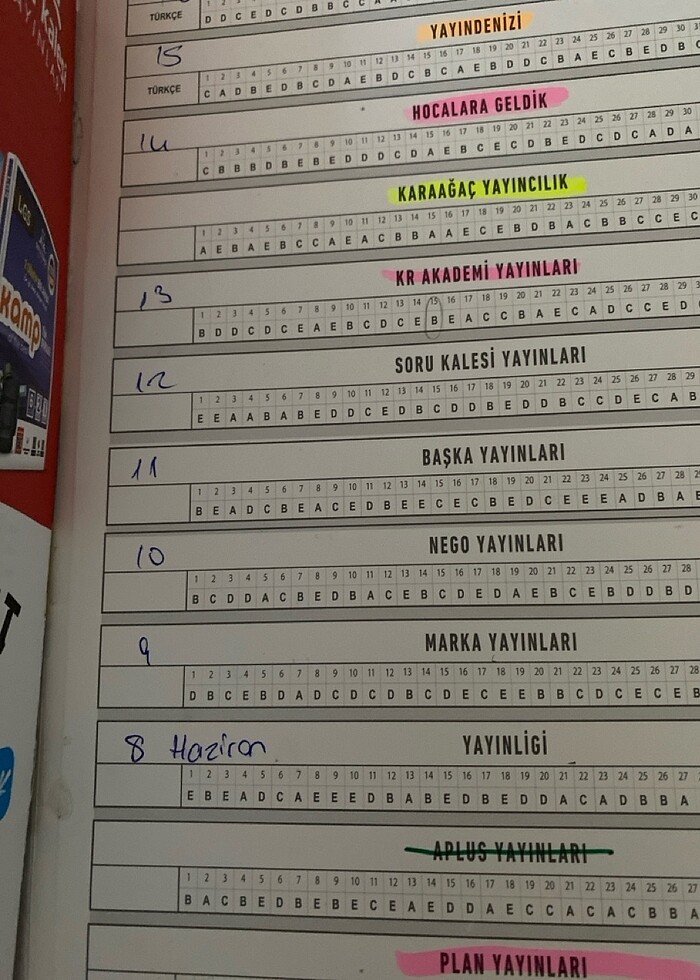 TÜRKÇE D D C E D C D B B C C
15 YAYINDENİZİ
1 2 3 4 5 6 7 8 9 10 11 12 13 14 15 16 17 18 19 20 21 22 23 24 25 26 27 28 29 30
TÜRKÇE C A D B E D B C D A E B D C B C A E B D D C B A E C B E D B
14 HOCALARA GELDİK
1 2 3 4 5 6 7 8 9 10 11 12 13 14 15 16 17 18 19 20 21 22 23 24 25 26 27 28 29 30
C B B B D B E B E D D D C D A E B C E C D B E D C D C A D A
KARAAĞAÇ YAYINCILIK
1 2 3 4 5 6 7 8 9 10 11 12 13 14 15 16 17 18 19 20 21 22 23 24 25 26 27 28 29 30
A E B A E B C C A E A C B B A A E C E B D B A C B B C C E C
13 KR AKADEMİ YAYINLARI
1 2 3 4 5 6 7 8 9 10 11 12 13 14 15 16 17 18 19 20 21 22 23 24 25 26 27 28 29
B D D C D C E A E B C D C E B E A C C B A E C A D C C E D
12 SORU KALESİ YAYINLARI
1 2 3 4 5 6 7 8 9 10 11 12 13 14 15 16 17 18 19 20 21 22 23 24 25 26 27 28 29
E E A A B A B E D D C E D B C D D B E D D B C C D E C A B
11 BAŞKA YAYINLARI
1 2 3 4 5 6 7 8 9 10 11 12 13 14 15 16 17 18 19 20 21 22 23 24 25 26 27 28
B E A D C B E A C E D B E E C E C B E D C E E E A D B A
10 NEGO YAYINLARI
1 2 3 4 5 6 7 8 9 10 11 12 13 14 15 16 17 18 19 20 21 22 23 24 25 26 27 28
B C D D A C B E D B A C E B C D E D A E B C E B D D B D
9 MARKA YAYINLARI
1 2 3 4 5 6 7 8 9 10 11 12 13 14 15 16 17 18 19 20 21 22 23 24 25 26 27 28
D B C E B D A D C D C D B C D E C E E B B C D C E C E B
8 Haziran YAYINLIGI
1 2 3 4 5 6 7 8 9 10 11 12 13 14 15 16 17 18 19 20 21 22 23 24 25 26 27
E B E A D C A E E E D B A B E D B E D D A C A D B B A
APLUS YAYINLARI
1 2 3 4 5 6 7 8 9 10 11 12 13 14 15 16 17 18 19 20 21 22 23 24 25 26 27
B A C B E D B E B E C E A E D D A E C C A C A C B B A
PLAN YAYINLARI
LGS
kamp